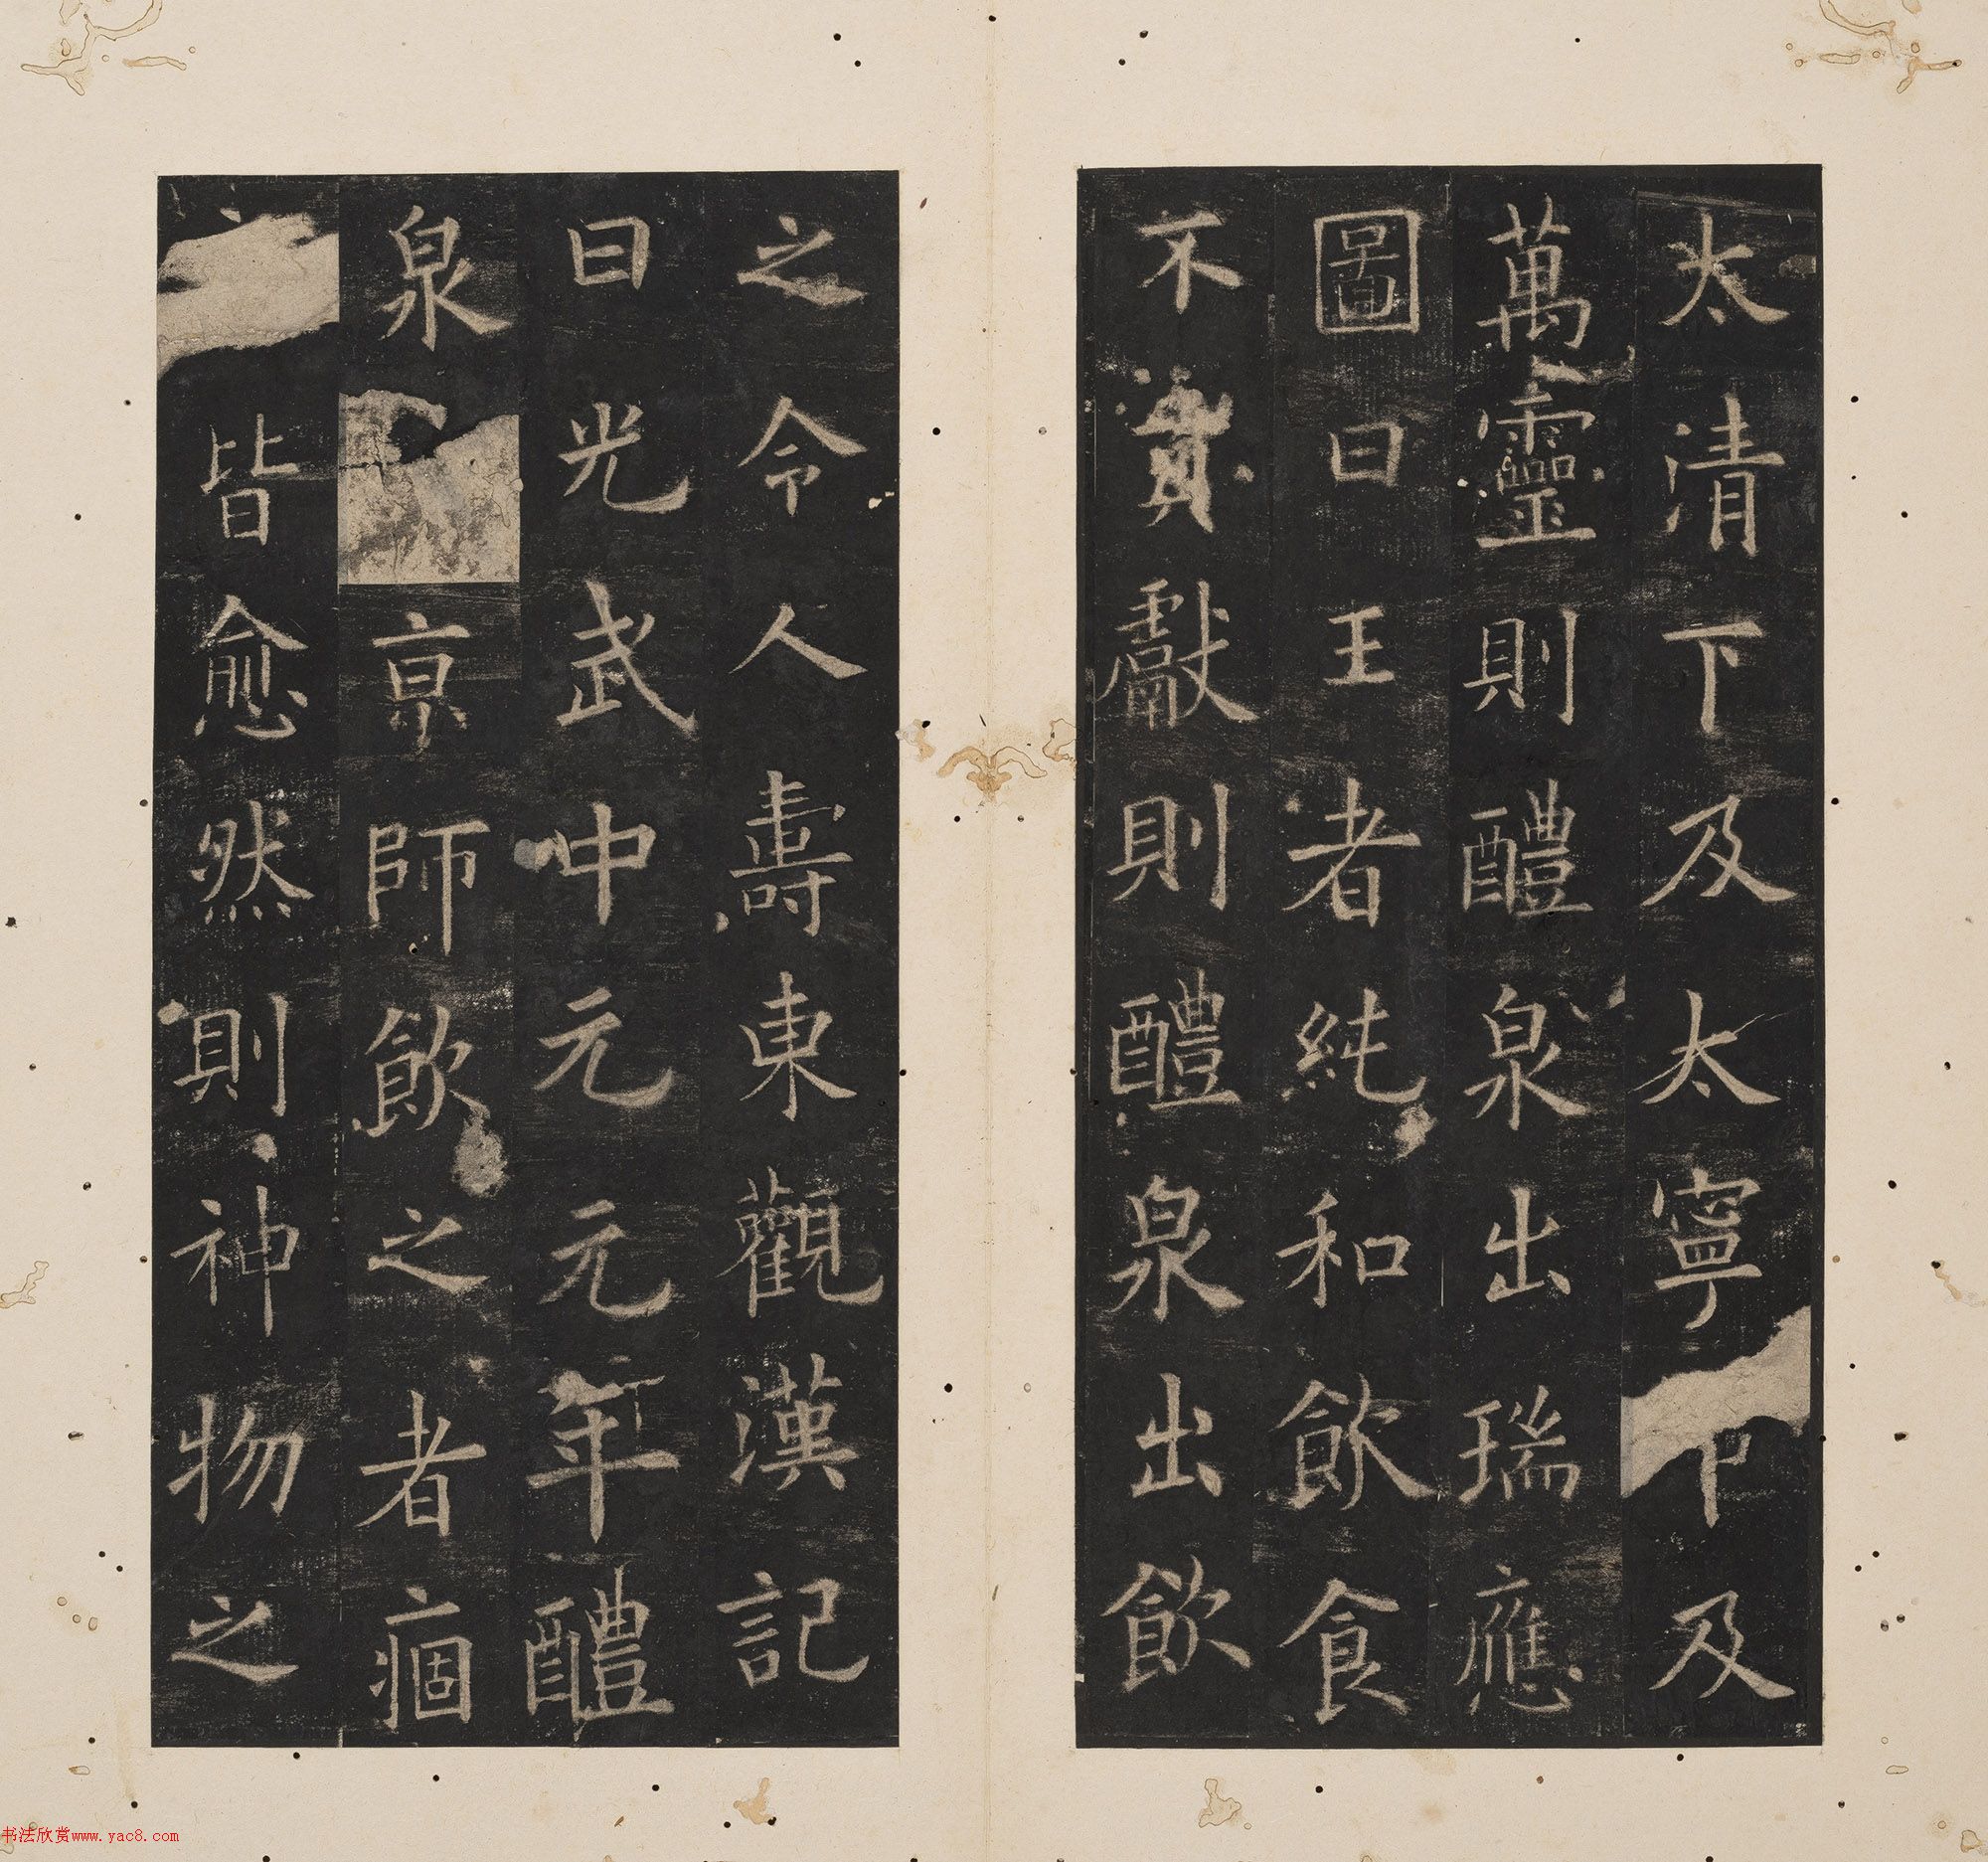 太清下及太寧下及
萬靈則醴泉出瑞應
圖曰王者純和飲食
不貢獻則醴泉出飲
之令人壽東觀漢記
曰光武中元元年醴
泉京師飲之者痼
皆愈然則神物之
书法欣赏www.yac8.com